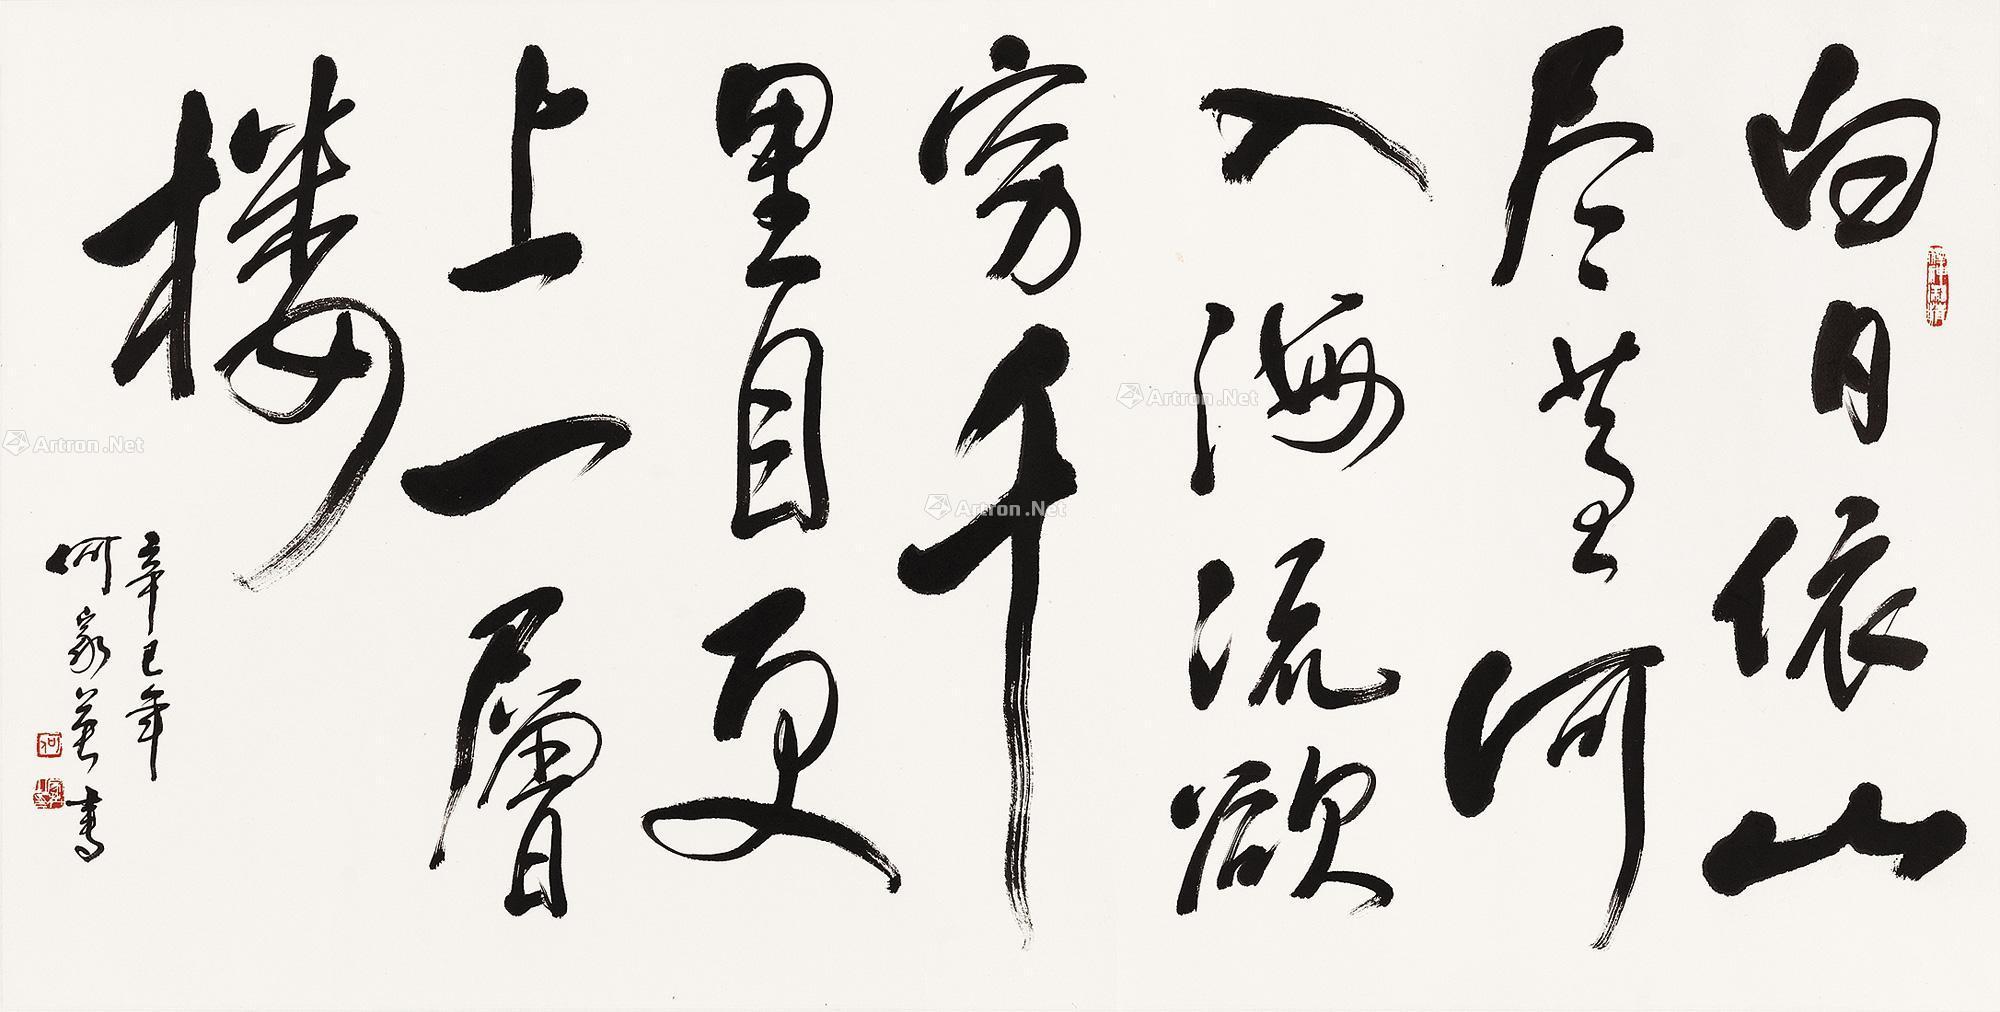 白日依山
尽黄河
入海流欲
穷千
里目更
上一層
楼
辛巳年
何家英書
Artron.Net
Artron.Net
Artron.Net